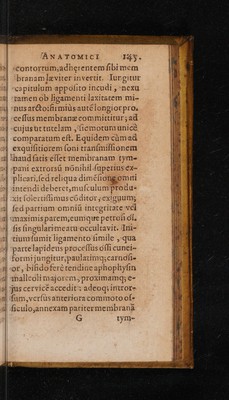 ANATOMICI 145.
contortum, adhęrentem sibi mem
branam læviter invertit. Iungitur
capitulum apposito incudi, nexu
tamen ob ligamenti laxitatem mi-
nus arcto: si mius autē longior pro-
cessus membranæ committitur, ad
cujus tutelam, & motum unicè
comparatum est. Equidem cùm ad
exquisitiorem soni transmissionem
haud satis esset membranam tym-
pani extrorsū nōnihil superius ex-
plicari, sed reliqua dimēsione omni
intendi deberet, musculum produ-
xit solertissimus cōditor, exiguum;
sed partium omniū integritate vel
maximis parem, eunque petrosi os-
sis singulari meatu occultavit. Ini-
tium sumit ligamento simile, qua
parte lapideus processus ossi cunei-
formi jungitur, paulatimq; carnosi-
or, bifido ferè tendine apophysin
malleoli majorem, proximamq; e-
jus cervicē accedit: adeoq; intror-
sum, versus anteriora commoto os-
siculo, annexam pariter membranā
G tym-